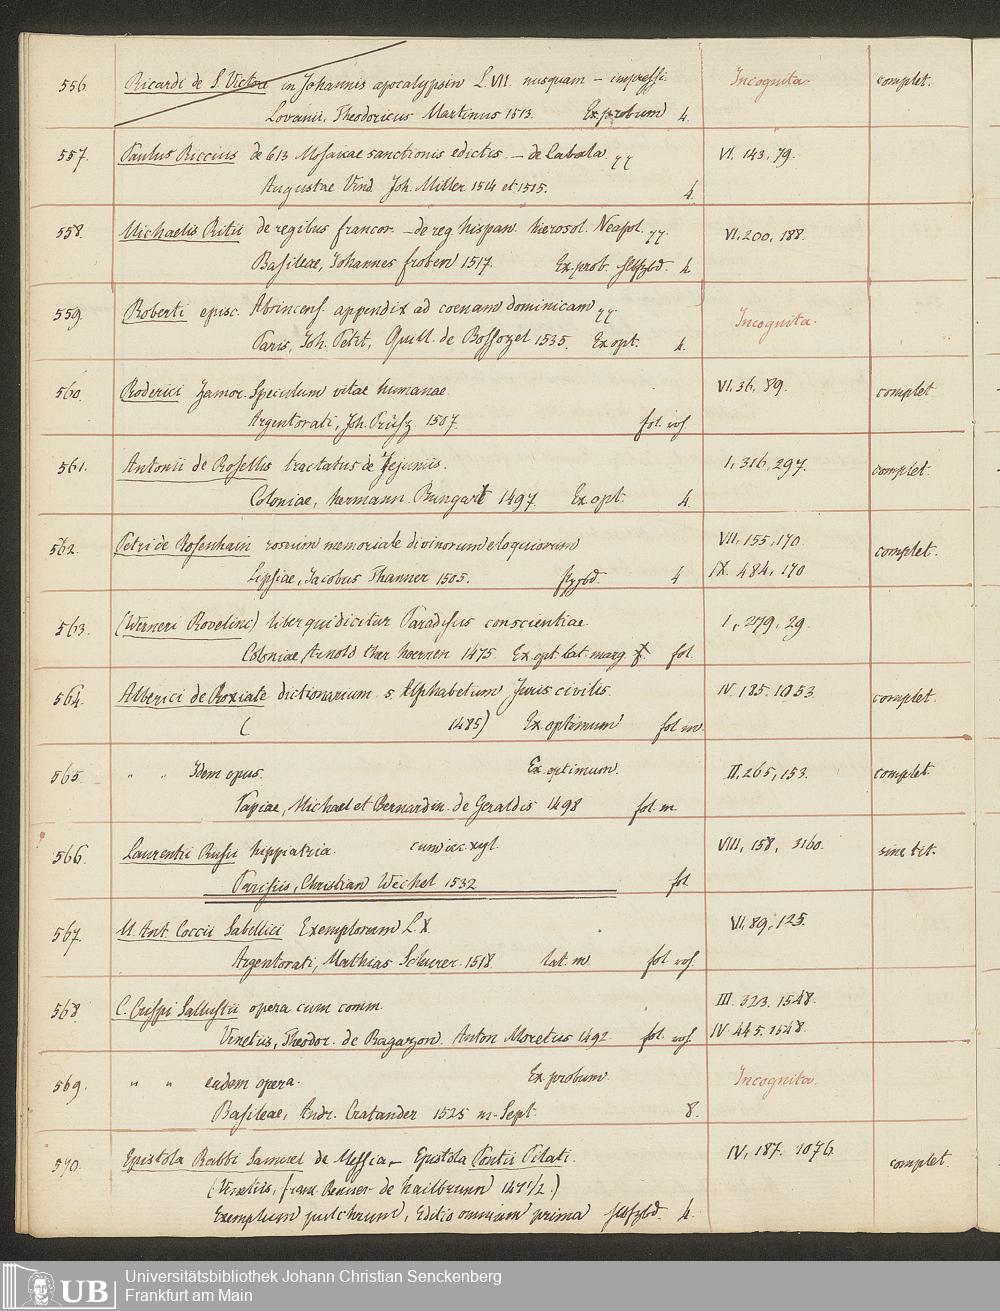 556. Ricardi de S. Victore in Johannis apocalypsin L. VII. nusquam – impressi. Incognita. complet.
Lovanii, Theodoricus Martinus 1513. Ex. probum 4.
557. Paulus Riccius de 613 Mosaicae sanctionis edictis – de Cabala VI, 143, 79.
Augustae Vind. Joh. Miller 1514 et 1515. 4.
558. Michaelis Ritii de regibus francor. – de reg hispan. hierosol. Neapol. VI, 200, 188.
Basileae, Johannes froben 1517. Ex. prob. 4.
559. Roberti episc. Abrincens. appendix ad coenam dominicam Incognita.
Paris, Joh. Petit, Guill. de Bossozel 1535. Ex opt. 4.
560. Roderici Zamor. Speculum vitae humanae. VI. 36. 89. complet
Argentorati, Joh. Prüsz 1507. fol.
561. Antonii de Rosellis tractatus de Jejuniis. I, 316, 297. complet.
Coloniae, hermann. Bungart 1497. Ex opt. 4.
562. Petri de Rosenhain roseum memoriale divinorum eloquiorum VII, 155, 170. complet.
Lipsiae, Jacobus Thanner 1505. 4 IX. 484, 170
563. (Werneri Rovelinc) liber qui dicitur Paradisus conscientiae. I, 279, 29.
Coloniae, Arnold ther hoernen 1475. Ex. opt. lat. marg. fol.
564. Alberici de Roxiate dictionarium s. Alphabetum Juris civilis. IV. 185. 1053. complet.
( 1485) Ex. optimum fol m.
565. " " Idem opus. Ex. optimum. II. 265, 153. complet.
Papiae, Michael et Bernardin. de Geraldis 1498 fol. m
566. Laurentii Rusii hippiatria. cum icc. xyl. VIII, 158, 3160. sine tit.
Parisiis, Christian Wechel 1532 fol
567. M. Ant. Coccii Sabellici Exemplorum L X. VI. 89, 125.
Argentorati, Mathias Schurer. 1518. lat. m. fol.
568. C. Crispi Sallustii opera cum comm. III. 323. 1548.
Venetiis, Theodor. de Ragazon. Anton Moretus 1492 fol. IV. 445. 1548.
569. " " eadem opera. Ex probum. Incognita.
Basileae, Andr. Cratander 1525 m. Sept. 8.
570. Epistola Rabbi Samuel de Messia. – Epistola Pontii Pilati. IV, 187. 1076. complet.
(Venetiis, franz. Renner de hailbrunn 1471/2.)
Exemplum pulchrum, Editio omnium prima 4.
Universitätsbibliothek Johann Christian Senckenberg
Frankfurt am Main
UB